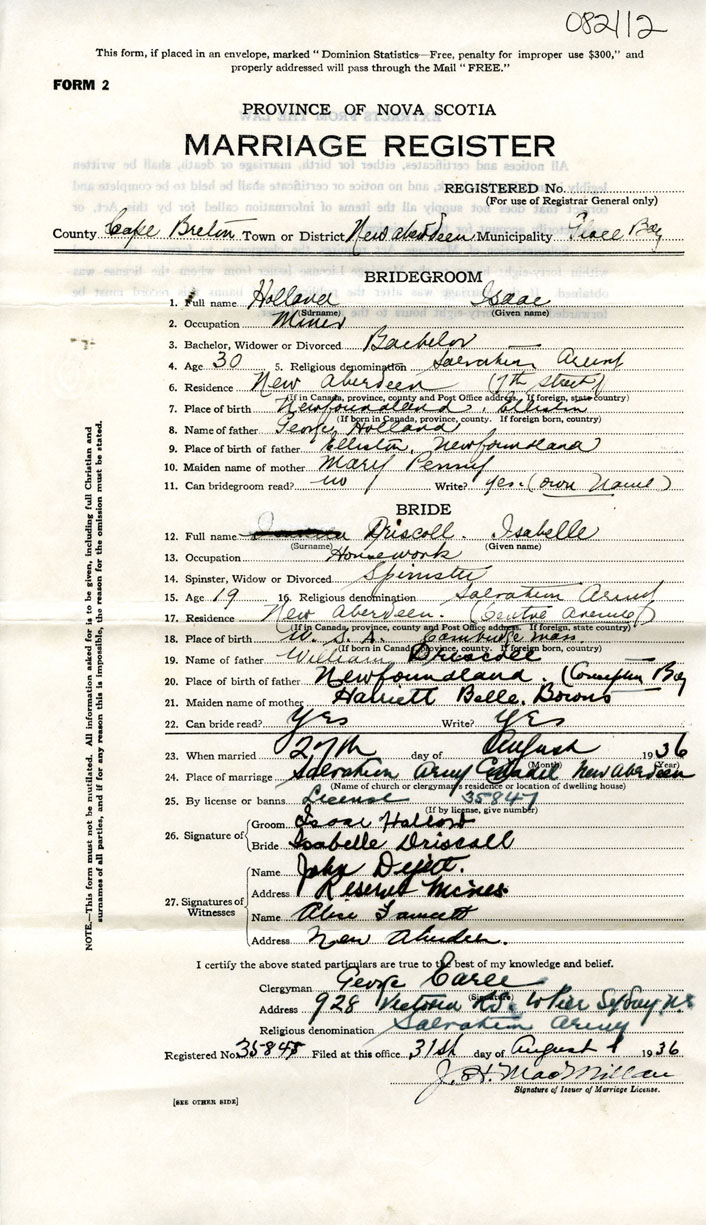 082112
This form, if placed in an envelope, marked "Dominion Statistics—Free, penalty for improper use $300," and
properly addressed will pass through the Mail "FREE."
FORM 2
PROVINCE OF NOVA SCOTIA
MARRIAGE REGISTER
REGISTERED No.
(For use of Registrar General only)
County Cape Breton Town or District New Aberdeen Municipality Glace Bay
BRIDEGROOM
1. Full name Holland Isaac
(Surname) (Given name)
2. Occupation Miner
3. Bachelor, Widower or Divorced Bachelor
4. Age 30 5. Religious denomination Salvation Army
6. Residence New Aberdeen (7th street)
(If in Canada, province, county and Post Office address. If foreign, state country)
7. Place of birth Newfoundland, Elliston
(If born in Canada, province, county. If foreign born, country)
8. Name of father George Holland
9. Place of birth of father Elliston, Newfoundland
10. Maiden name of mother Mary Penny
11. Can bridegroom read? no Write? yes. (own Name)
BRIDE
12. Full name Driscoll. Isabelle
(Surname) (Given name)
13. Occupation Housework
14. Spinster, Widow or Divorced Spinster
15. Age 19 16. Religious denomination Salvation Army
17. Residence New Aberdeen. (Centre Avenue)
(If in Canada, province, county and Post Office address. If foreign, state country)
18. Place of birth U. S. A. Cambridge Mass.
(If born in Canada, province, county. If foreign born, country)
19. Name of father William Driscoll
20. Place of birth of father Newfoundland. (Conception Bay
21. Maiden name of mother Harriett Belle. Bowns
22. Can bride read? Yes Write? Yes
23. When married 27th day of August 1936
(Month) (Year)
24. Place of marriage Salvation Army Citadel New Aberdeen
(Name of church or clergyman's residence or location of dwelling house)
25. By license or banns License 35847
(If by license, give number)
26. Signature of Groom Isaac Holland
Bride Isabelle Driscoll
27. Signatures of Witnesses Name John
Address Reserve Mines
Name Alice
Address New Aberdeen.
I certify the above stated particulars are true to the best of my knowledge and belief.
Clergyman George Earle
(Signature)
Address 928 Victoria Rd. W Pier Sydney N.S.
Religious denomination Salvation Army
Registered No. Filed at this office 31st day of August 1936
J. H. MacMillan
Signature of Issuer of Marriage License.
[SEE OTHER SIDE]
NOTE.—This form must not be mutilated. All information asked for is to be given, including full Christian and
surnames of all parties, and if for any reason this is impossible, the reason for the omission must be stated.